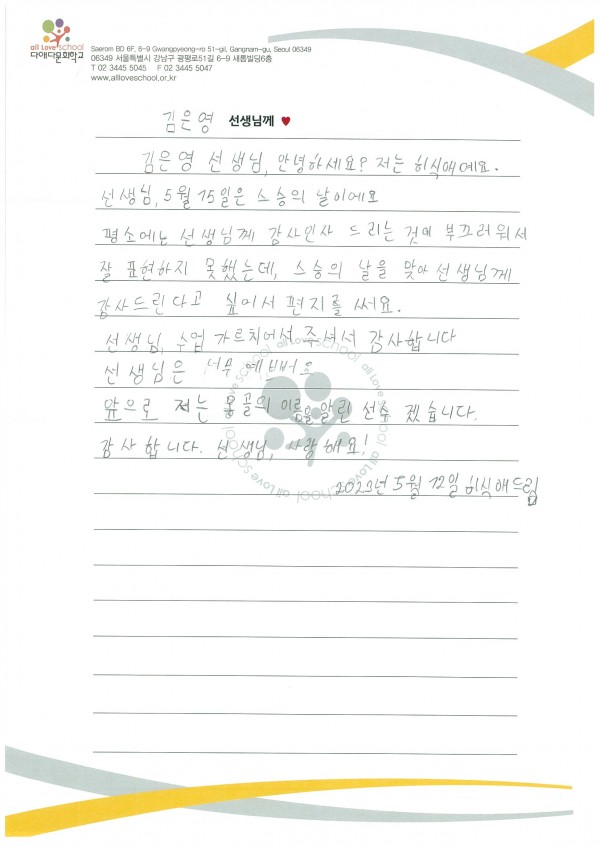 all Love school
다애다문화학교
Saerom BD 6F, 6-9 Gwangpyeong-ro 51-gil, Gangnam-gu, Seoul 06349
06349 서울특별시 강남구 광평로51길 6-9 새롬빌딩6층
T 02 3445 5045 F 02 3445 5047
www.allloveschool.or.kr
김은영 선생님께 ♥
김은영 선생님, 안녕하세요? 저는 히식애예요.
선생님, 5월 15일은 스승의 날이에요
평소에는 선생님께 감사인사 드리는 것에 부끄러워서
잘 표현하지 못했는데, 스승의 날을 맞아 선생님께
감사드린다고 싶어서 편지를 써요.
선생님, 수업 가르치어서 주셔서 감사합니다
선생님은 너무 예뻐요
앞으로 저는 몽골의 이름을 알린 선수 겠습니다.
감사합니다. 선생님, 사랑해요!
2023년 5월 12일 히식애드림
all Love school all Love school all Love school all Love school